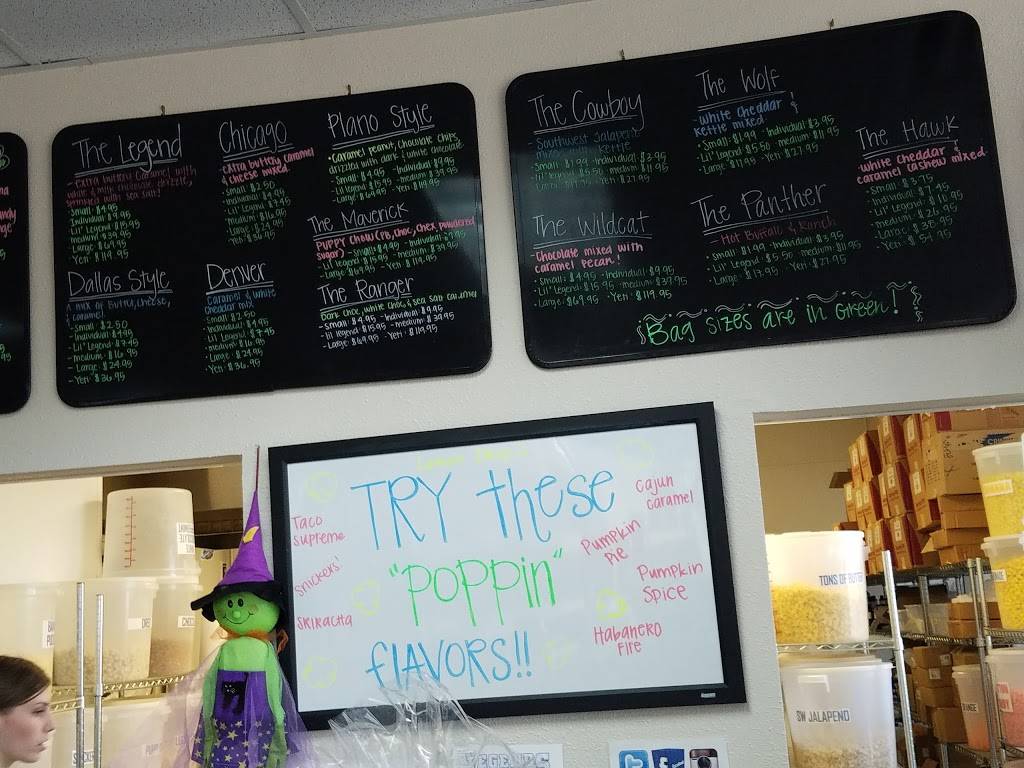 The Legend
- Extra buttery Caramel with
white & milk chocolate drizzle,
sprinkled with sea salt!
Small: $4.95
Individual $9.95
Lil' Legend $15.95
medium $39.95
Large $69.95
Yeti $119.95
Chicago
- Extra buttery caramel
& cheese mixed
Small: $2.50
- Individual $4.95
- Lil' Legend $7.95
- medium $16.95
- Large $24.95
Yeti $36.95
Plano Style
- Caramel, peanut, chocolate chips,
drizzled with dark & white chocolate
Small $4.95 - Individual $9.95
Lil' Legend $15.95 - medium $39.95
Large: $69.95 - Yeti: $119.95
The Maverick
Puppy Chow (PB, choc, chex, powdered
sugar) - Small $4.95 - Individual $9.95
- Lil' Legend $15.95 - medium $39.95
- Large: $69.95 - Yeti: $119.95
Dallas Style
A mix of butter, cheese,
& caramel!
- Small: $2.50
- Individual: $4.95
- Lil' Legend: $7.95
- medium: $16.95
- Large: $24.95
- Yeti: $36.95
Denver
Caramel & white
cheddar mix
- Small: $2.50
- Individual: $4.95
- Lil' Legend: $7.95
- medium: $16.95
- Large: $24.95
- Yeti: $36.95
The Ranger
Dark choc, white choc, & sea salt caramel
- Small: $4.95 - Individual: $9.95
- lil' legend: $15.95 - medium: $39.95
- Large: $69.95 - Yeti: $119.95
The Cowboy
- Southwest Jalapeno
mixed kettle
Small: $1.99 - Individual: $3.95
- Lil' Legend $5.50 - medium $11.95
Large: $17.95 - Yeti: $27.95
The Wolf
- white cheddar &
kettle mixed!
- Small: $1.99 - Individual: $3.95
- Lil' Legend: $5.50 - medium $11.95
- Large: $17.95 - Yeti: $27.95
The Hawk
- white cheddar &
caramel cashew mixed
- Small: $3.75
- Individual: $7.95
- Lil' Legend: $10.95
- medium: $26.95
- Large: $38.95
- Yeti: $54.95
The Wildcat
- Chocolate mixed with
caramel pecan!
- Small: $4.95 - Individual $9.95
- Lil' Legend: $15.95 - medium $39.95
- Large: $69.95 - Yeti: $119.95
The Panther
- Hot Buffalo & Ranch
- Small: $1.99 - Individual $3.95
- Lil' Legend: $5.50 - medium $11.95
- Large: $17.95 - Yeti: $27.95
Bag sizes are in Green!
TRY these
"Poppin"
flavors!!
Taco
Supreme
Snickers'
Sriracha
Cajun
Caramel
Pumpkin
Pie
Pumpkin
Spice
Habanero
Fire
TONS OF BUTTER
SW JALAPENO
LEGENDS